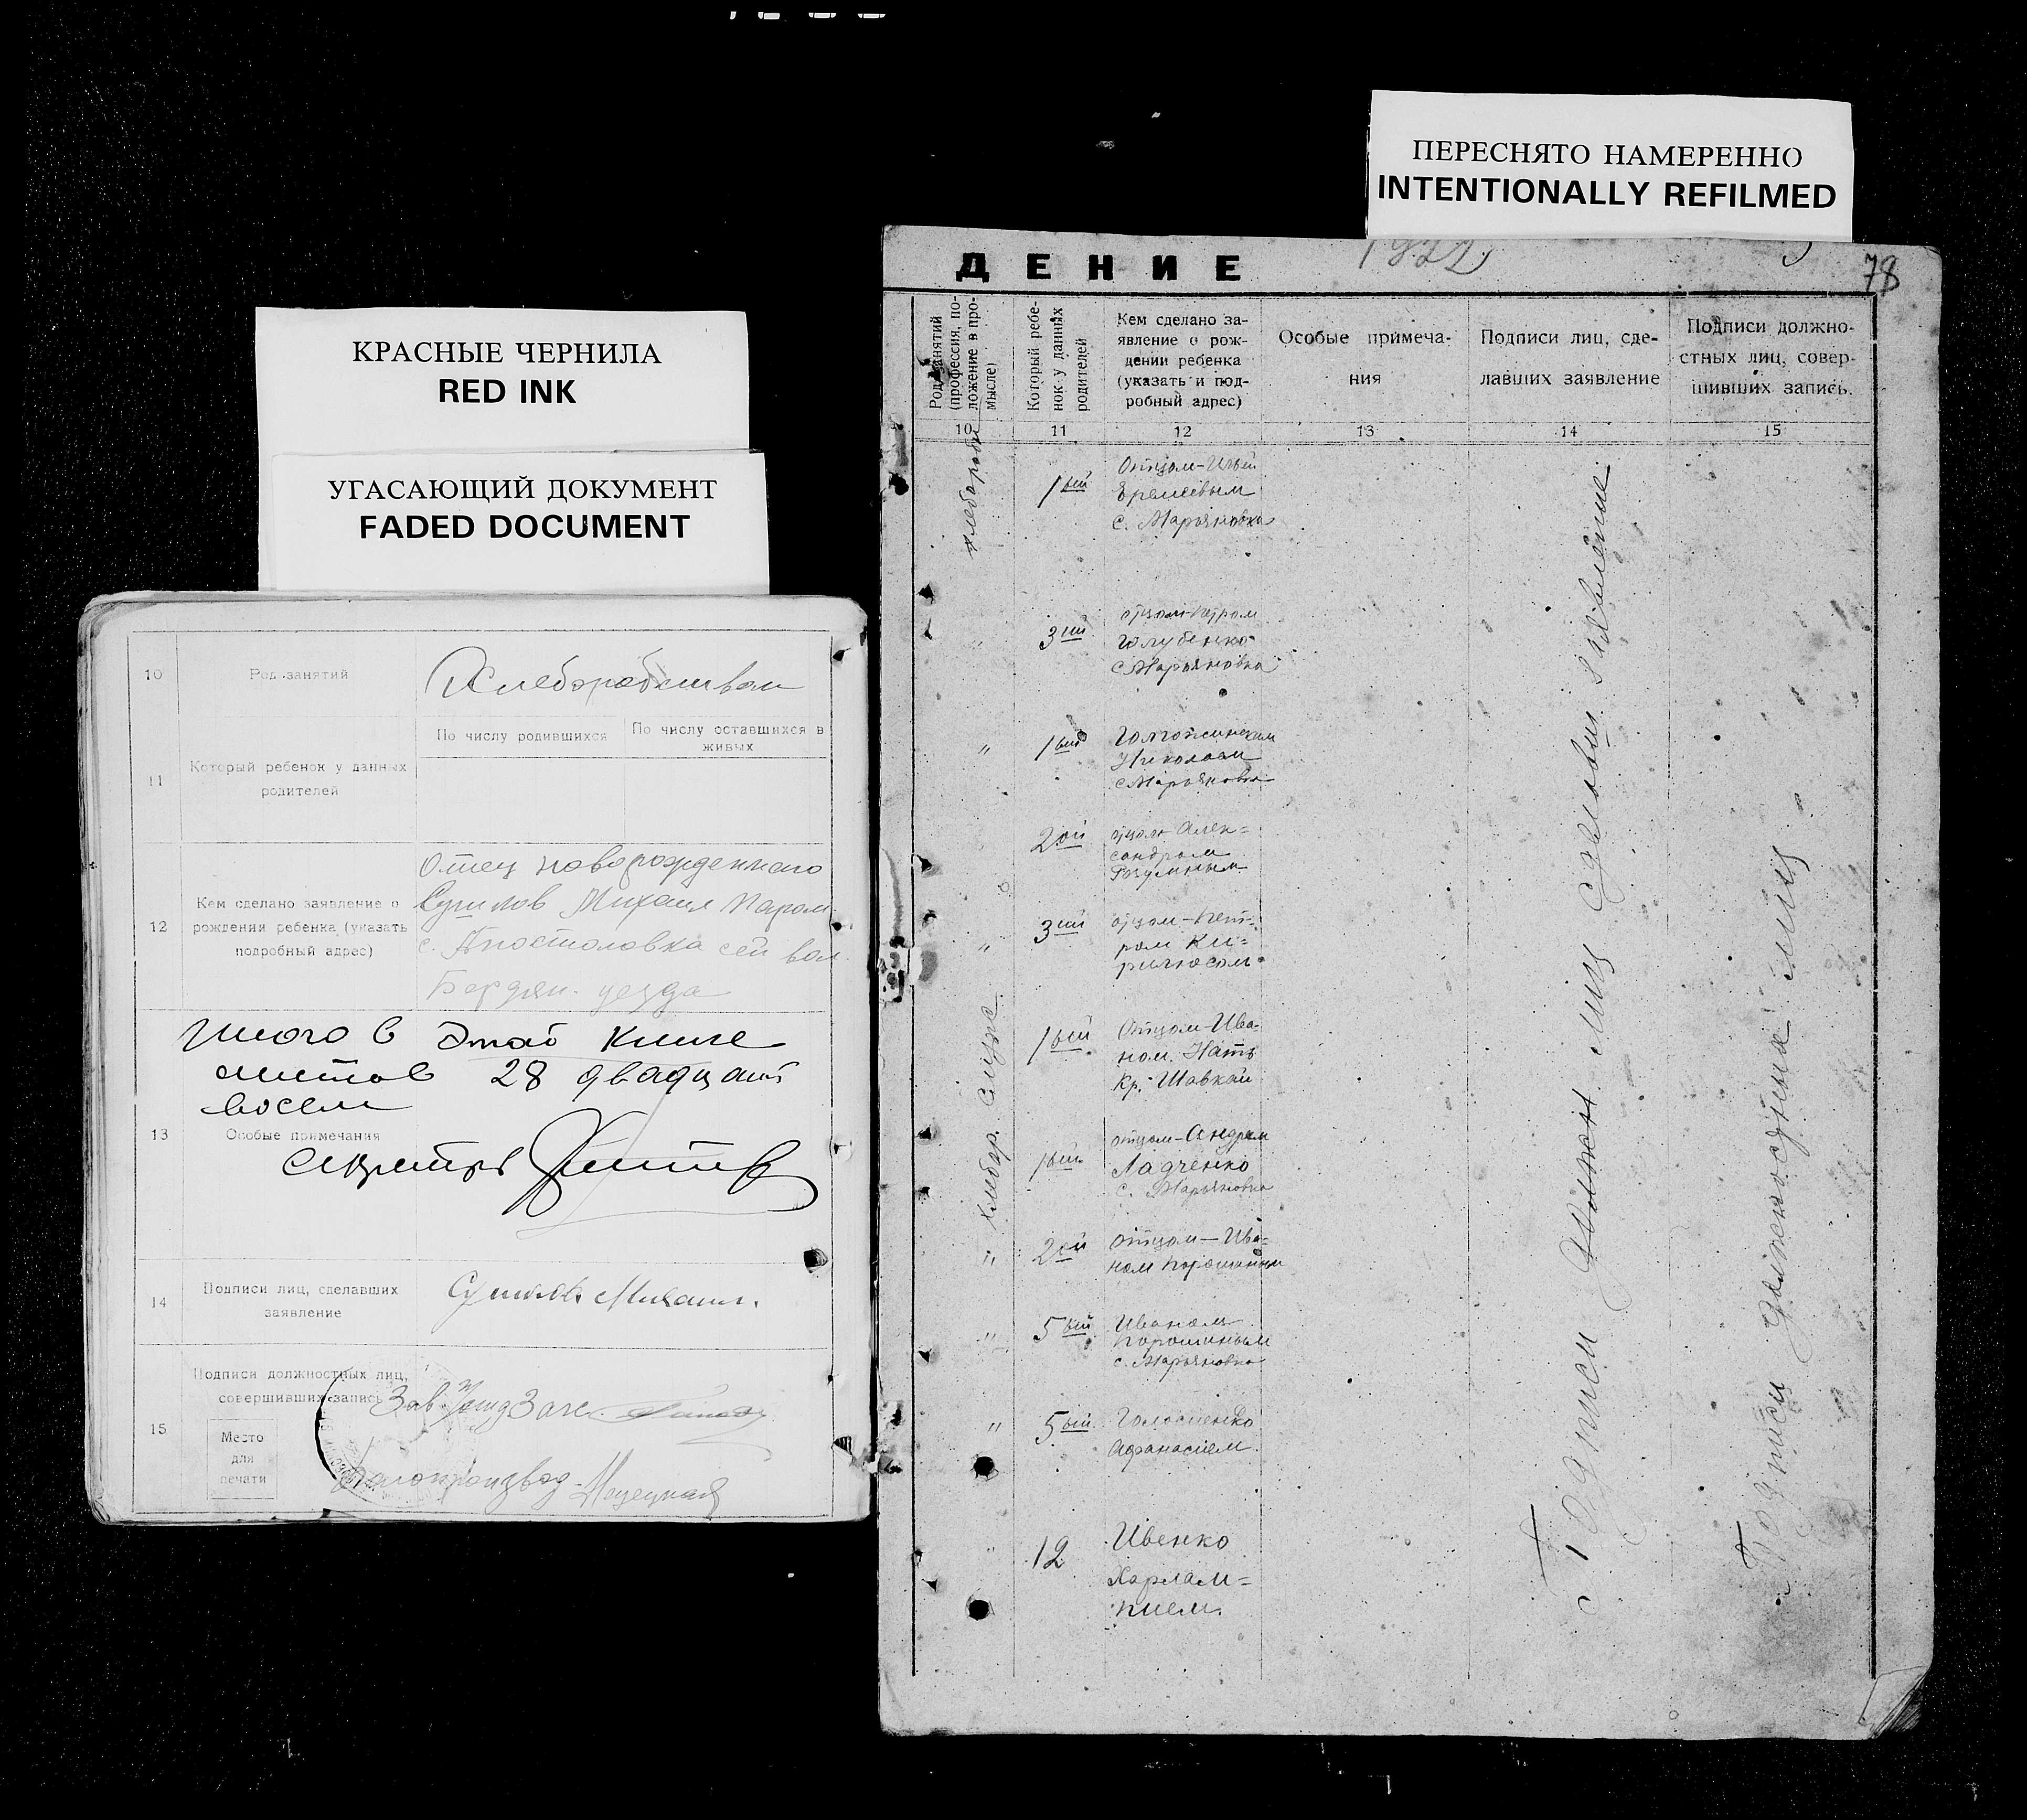 ПЕРЕСНЯТО НАМЕРЕННО
INTENTIONALLY REFILMED
КРАСНЫЕ ЧЕРНИЛА
RED INK
УГАСАЮЩИЙ ДОКУМЕНТ
FADED DOCUMENT
10
Род занятий
Хлеборобством
11
Который ребенок у данных
родителей
По числу родившихся
По числу оставшихся в
живых
12
Кем сделано заявление о
рождении ребенка (указать
подробный адрес)
Отец новорожденного
Михаил
с. Апостоловка сей вол.
Бердян. уезда
Итого в этой книге
листов 28 двадцать
восем
13
Особые примечания
секретарь
14
Подписи лиц, сделавших
заявление
Михаил.
15
Подписи должностных лиц,
совершивших запись
Место
для
печати
Делопроизвод.
ДЕНИЕ
1922
78
Род занятий
(профессия, по-
ложение в про-
мысле)
Который ребе-
нок у данных
родителей
Кем сделано за-
явление о рож-
дении ребенка
(указать и под-
робный адрес)
Особые примеча-
ния
Подписи лиц, сде-
лавших заявление
Подписи должно-
стных лиц, совер-
шивших запись.
10
11
12
13
14
15
хлебороб
1 ый
Отцом-Ильей
Еремеевым
с. Марьяновка
"
3 ий
отцом-Петром
Голубенко
с Марьяновка
"
1 ый
Николаем
с Марьяновка
2 ой
отцом Алек=
сандром
Разумным
"
3 ий
отцом-Пет-
ром Ки=
рилюсом
хлебор.
1 ый
Отцом-Ива-
ном. Нать
Кр. Шавкай
1 ый
отцом-Андреем
Ладченко
с. Марьяновка
"
2 ой
отцом-Ива=
ном Порошиным
"
5 ый
Иваном
Порошиным
с. Марьяновка
"
5 ый
Афанасием.
"
12
Ивенко
Харлам=
пием.
Подписи должн лиц сделавши заявление
Подписи должностныя лиц